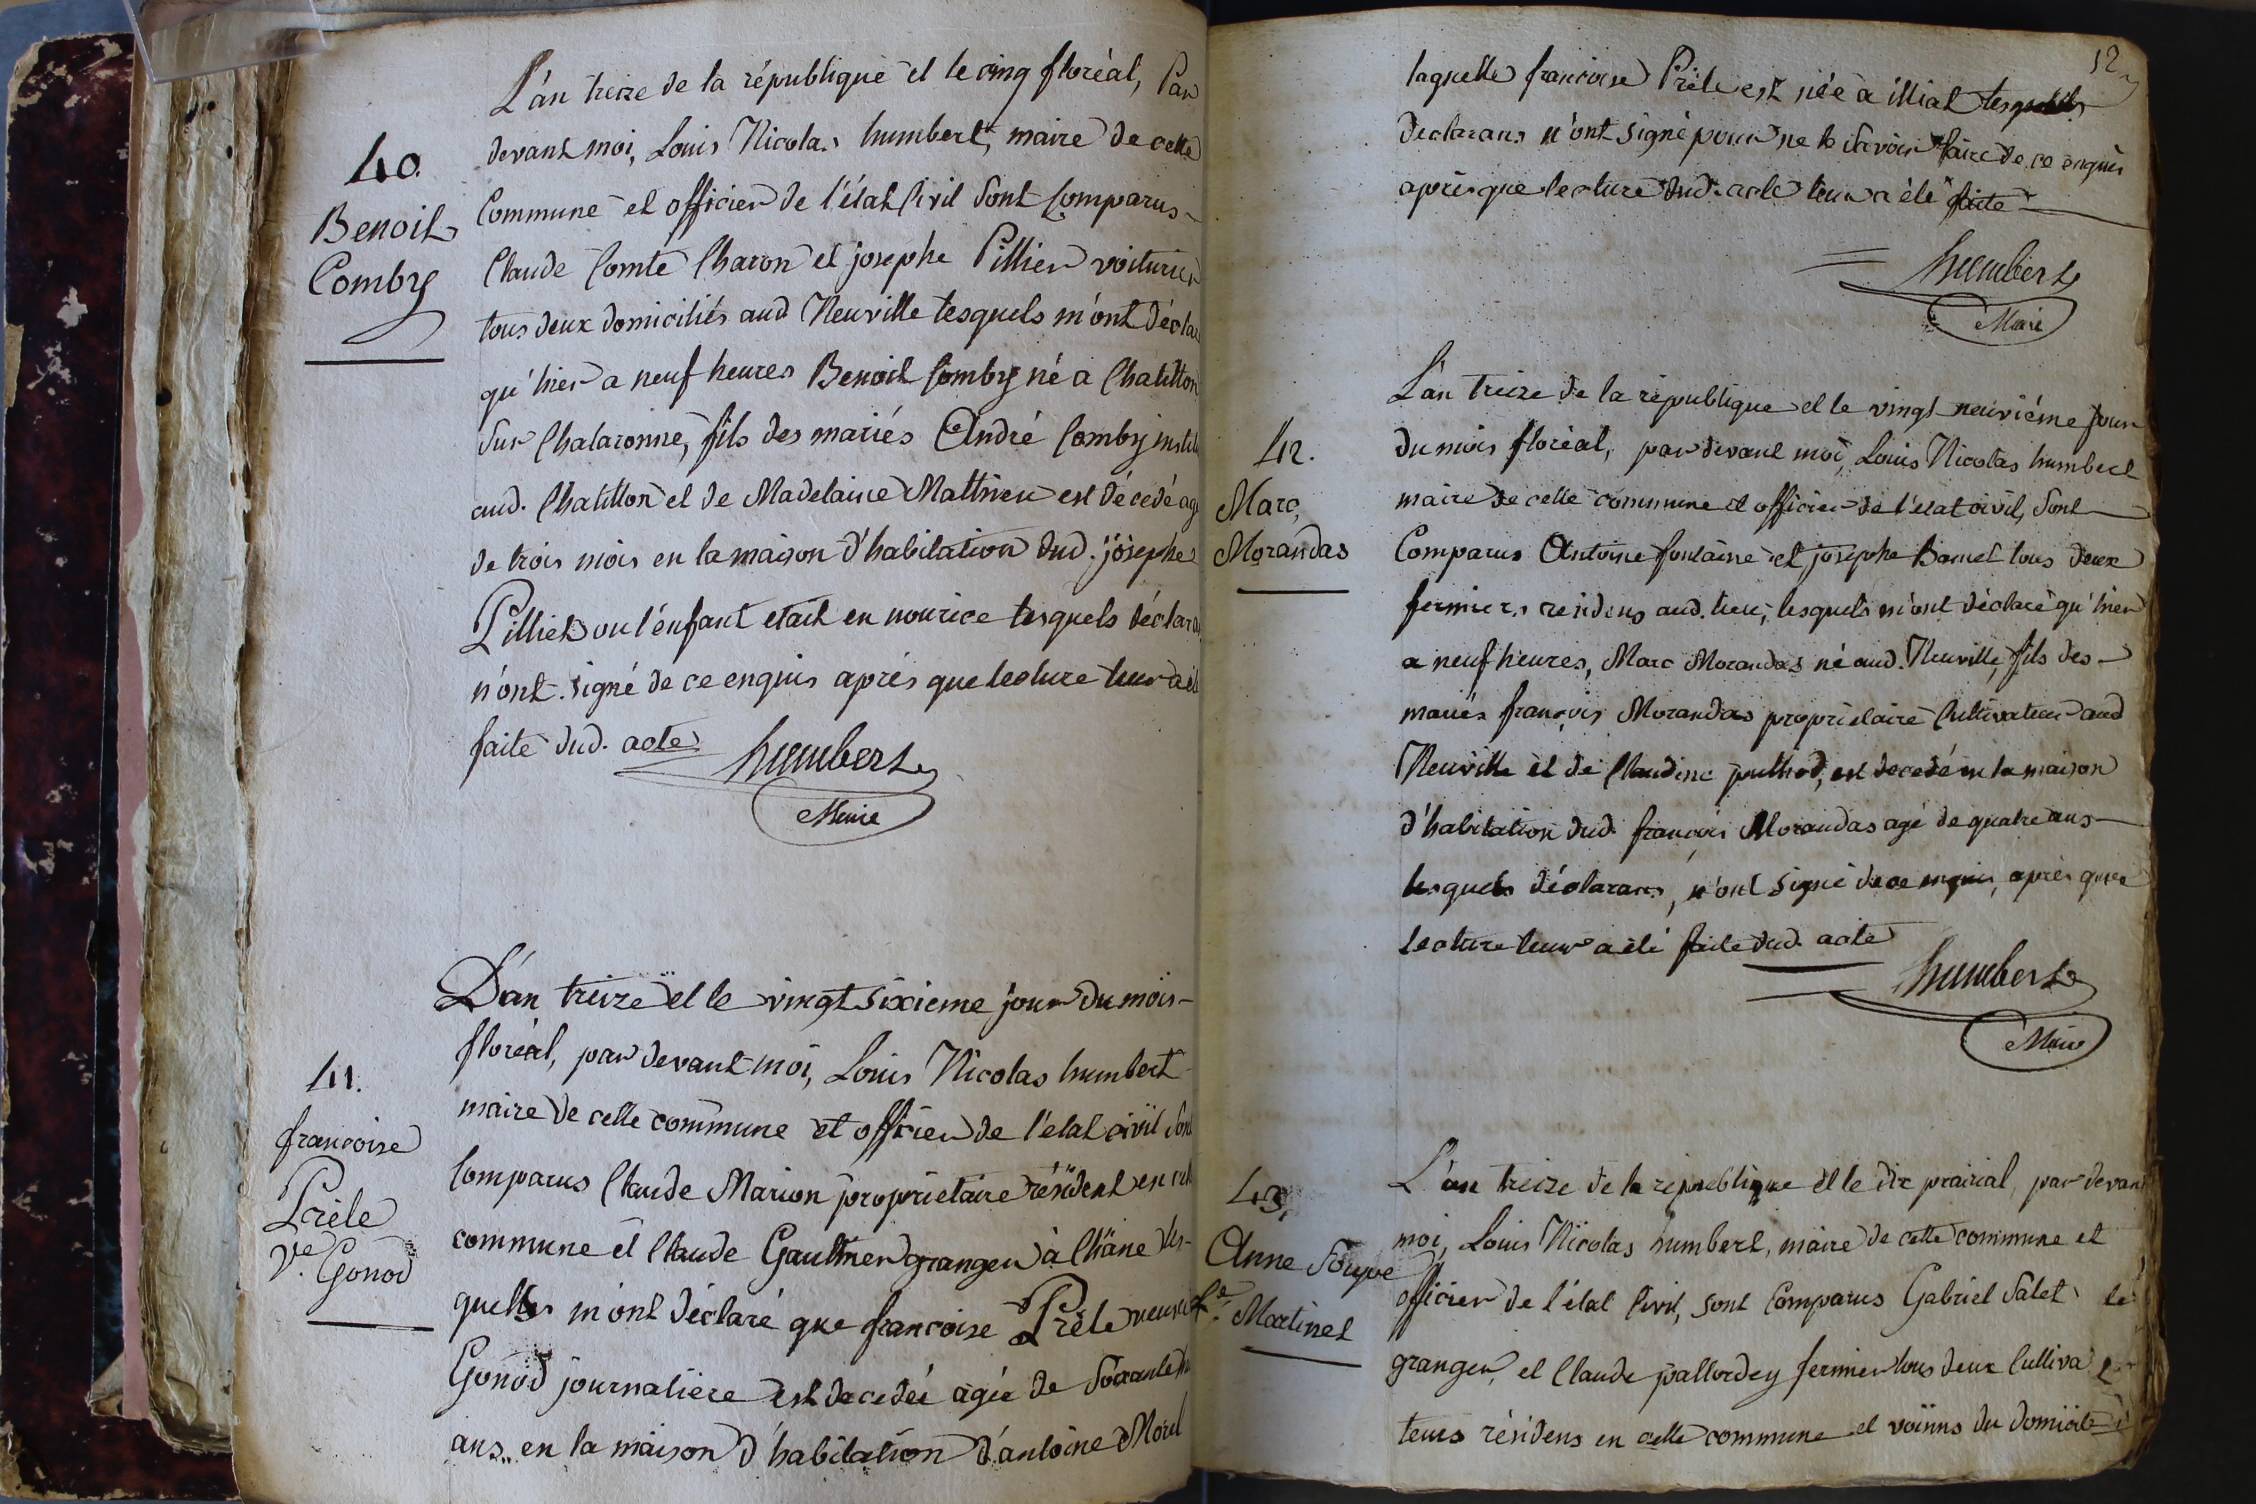 40.
Benoit
Comby
L'an treize de la république et le cinq floréal, Par
devant moi, Louis Nicolas humbert, maire de cette
Commune et officier de l'état Civil Sont Comparus
Claude Comte Charon et josephe Pillier voiturier
tous deux domiciliés aud Neuville lesquels m'ont décla
qu'hier a neuf heures Benoit Comby né a Chatillon
Sur Chalaronne, fils des mariés André Comby instit
aud. Chatillon et de Madelaine Mathieu est décedé ag
de trois mois en la maison d'habitation dud. josephe
Pillier ou l'enfant etait en nourice lesquels déclara
n'ont signé de ce enquis aprés que lecture leur a ét
faite dud. acte
humbert
Maire
41.
francoise
Prêle
Ve. Gonod
L'an treize et le vingt sixieme jour du mois
floréal, par devant moi, Louis Nicolas humbert
maire de cette commune et officier de l'état civil Sont
Comparus Claude Marion propriétaire résident en cet
commune et Claude Gaulthier granger à Châne les-
quells m'ont déclaré que francoise Prêle veuve
Gonod journaliere est decedée agée de Soixante
ans en la maison d'habitation d'antoine Morel
12
laquelle francoise Prêle est née à illiat lesquels
déclarans n'ont signé pour ne le Savoir faire de ce enquis
aprés que lecture dud. acte leur a été faite
humbert
Maire
42.
Marc
Morandas
L'an treize de la république et le vingt neuviéme jour
du mois floréal, par devant moi, Louis Nicolas humbert
maire de cette commune et officier de l'état civil, Sont
Comparus Antoine fontaine et josephe Barnet tous deux
fermiers residens aud. lieu, lesquels m'ont déclaré qu'hier
a neuf heures, Marc Morandas né aud. Neuville, fils des
mariés françois Morandas propriétaire Cultivateur aud
Neuville et de Claudine est decedé en la maison
d'habitation dud. françois Morandas agé de quatre ans
lesquels déclarans, n'ont signé de ce enquis, aprés que
lecture leur a été faite dud. acte
humbert
Maire
43.
Anne Soupe
fe. Martinet
L'an treize de la république et le dix prairial, par devant
moi, Louis Nicolas humbert, maire de cette commune et
officier de l'état Civil, Sont Comparus Gabriel Salet
granger, et Claude pallordey fermier tous deux Cultiva
teurs résidens en cette commune et voisins du domicile